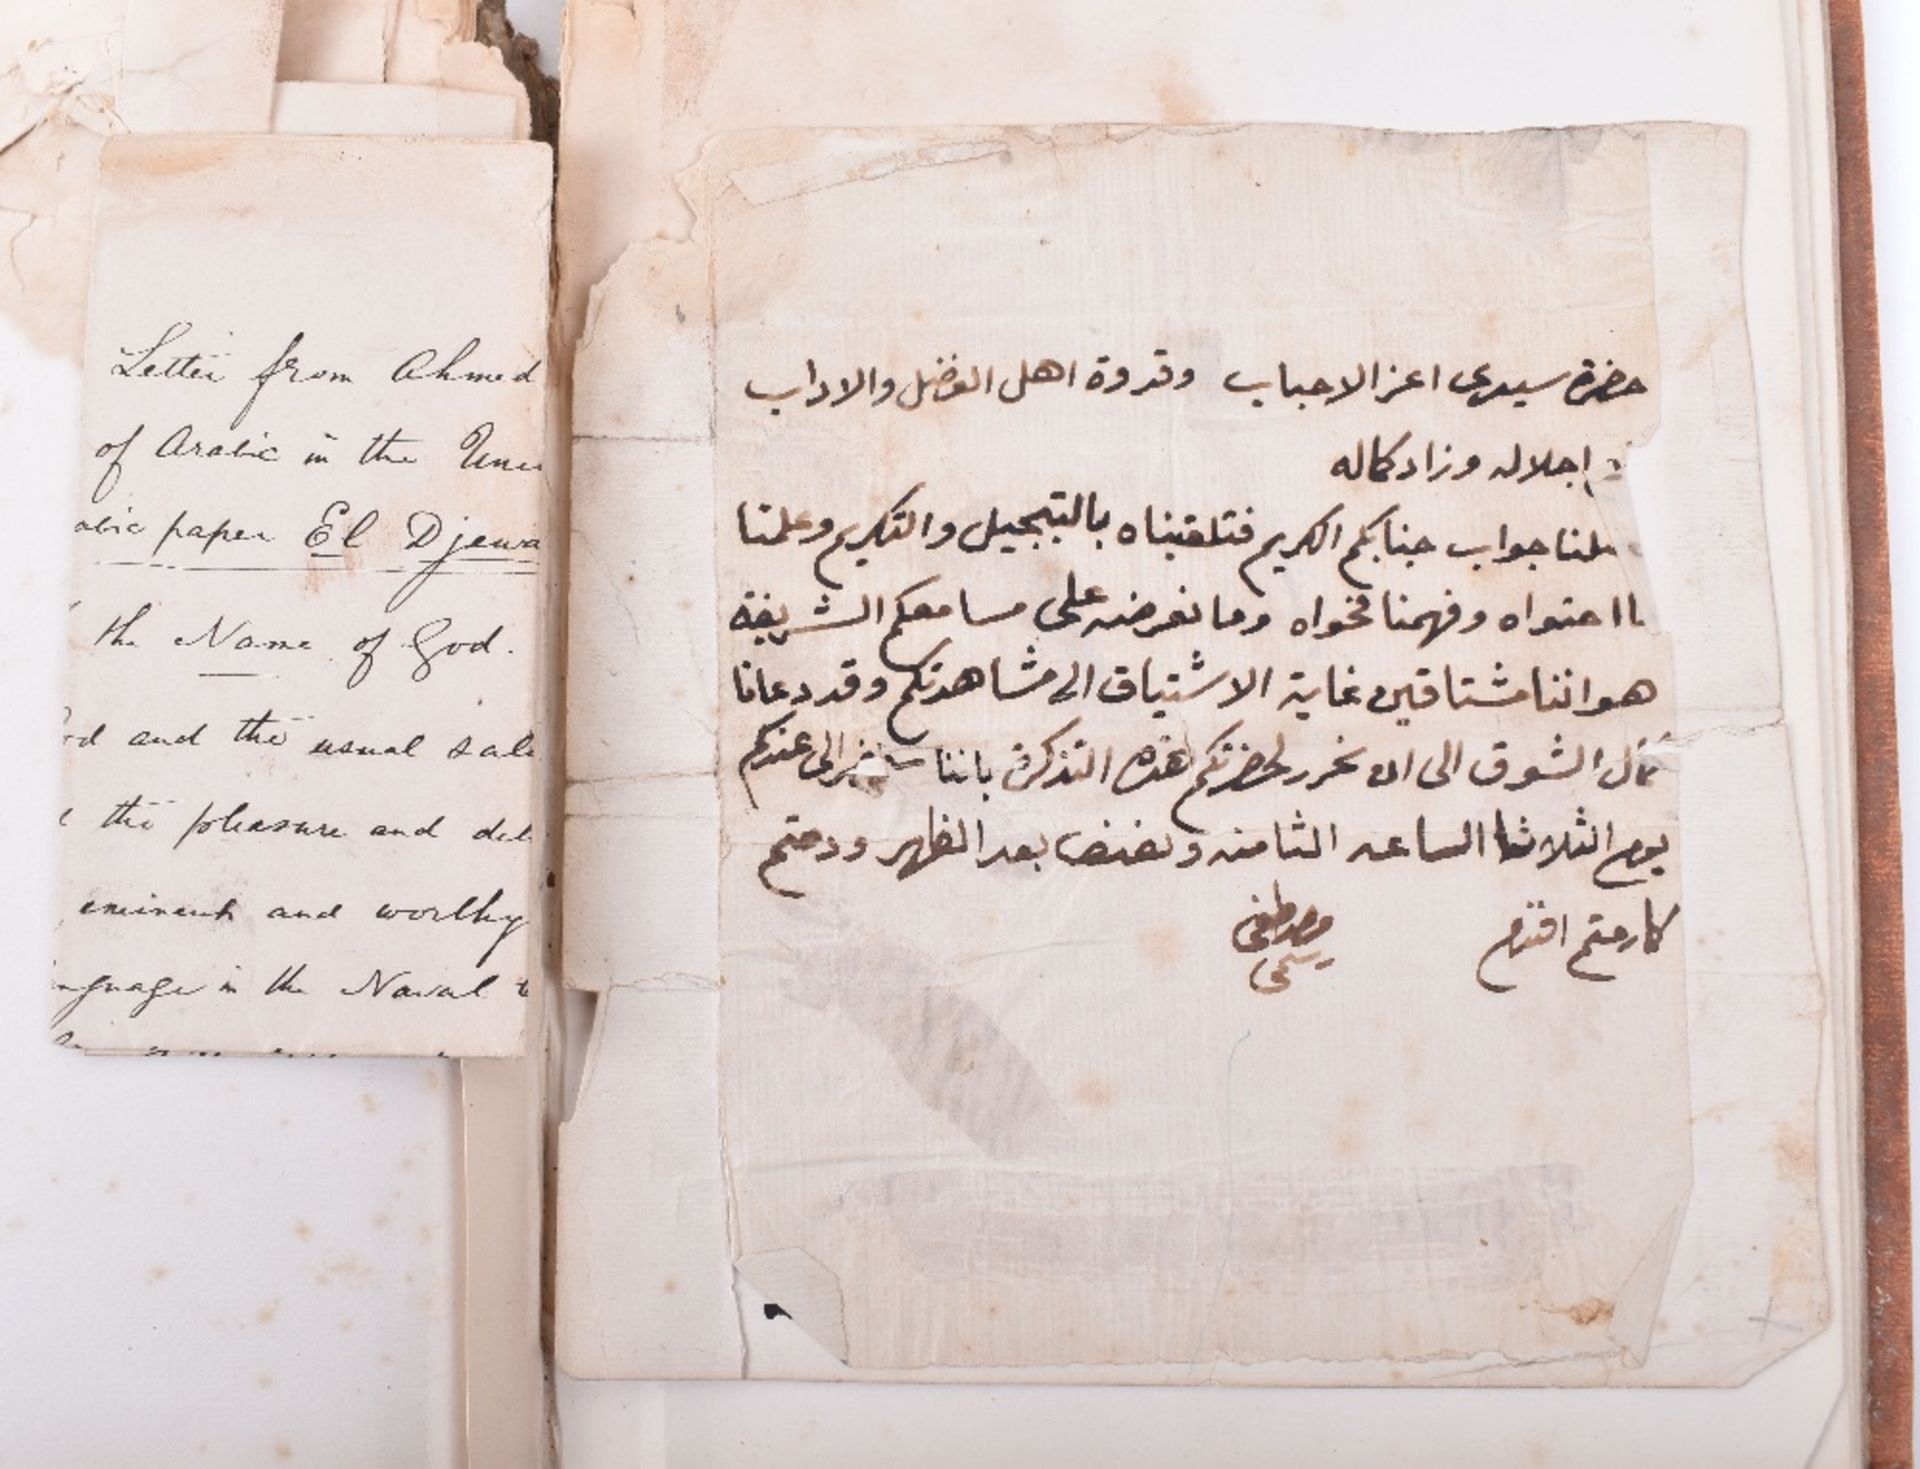 Letter from Ahmed
of Arabic in the
paper El Djewa
the Name of God.
and the usual sale
the pleasure and del
eminent and worthy
nguage in the Naval
حضرة سيدى اعز الاحباب وقدوة اهل الفضل والاداب
اجلاله وزاد كماله
جواب جنابكم الكريم فتلقيناه بالتبجيل والتكريم وعلمنا
احتواه وفهمنا فحواه وما نعرضه على مسامعكم الشريفة
هو اننا مشتاقين غاية الاشتياق الى مشاهدتكم وقد دعانا
الشوق الى ان نحرر لحضرتكم هذه التذكرة باننا الى عندكم
يوم الثلاثا الساعه الثامنه ونصف بعد الظهر ودمتم
كما رمتم افندم
مصطفى